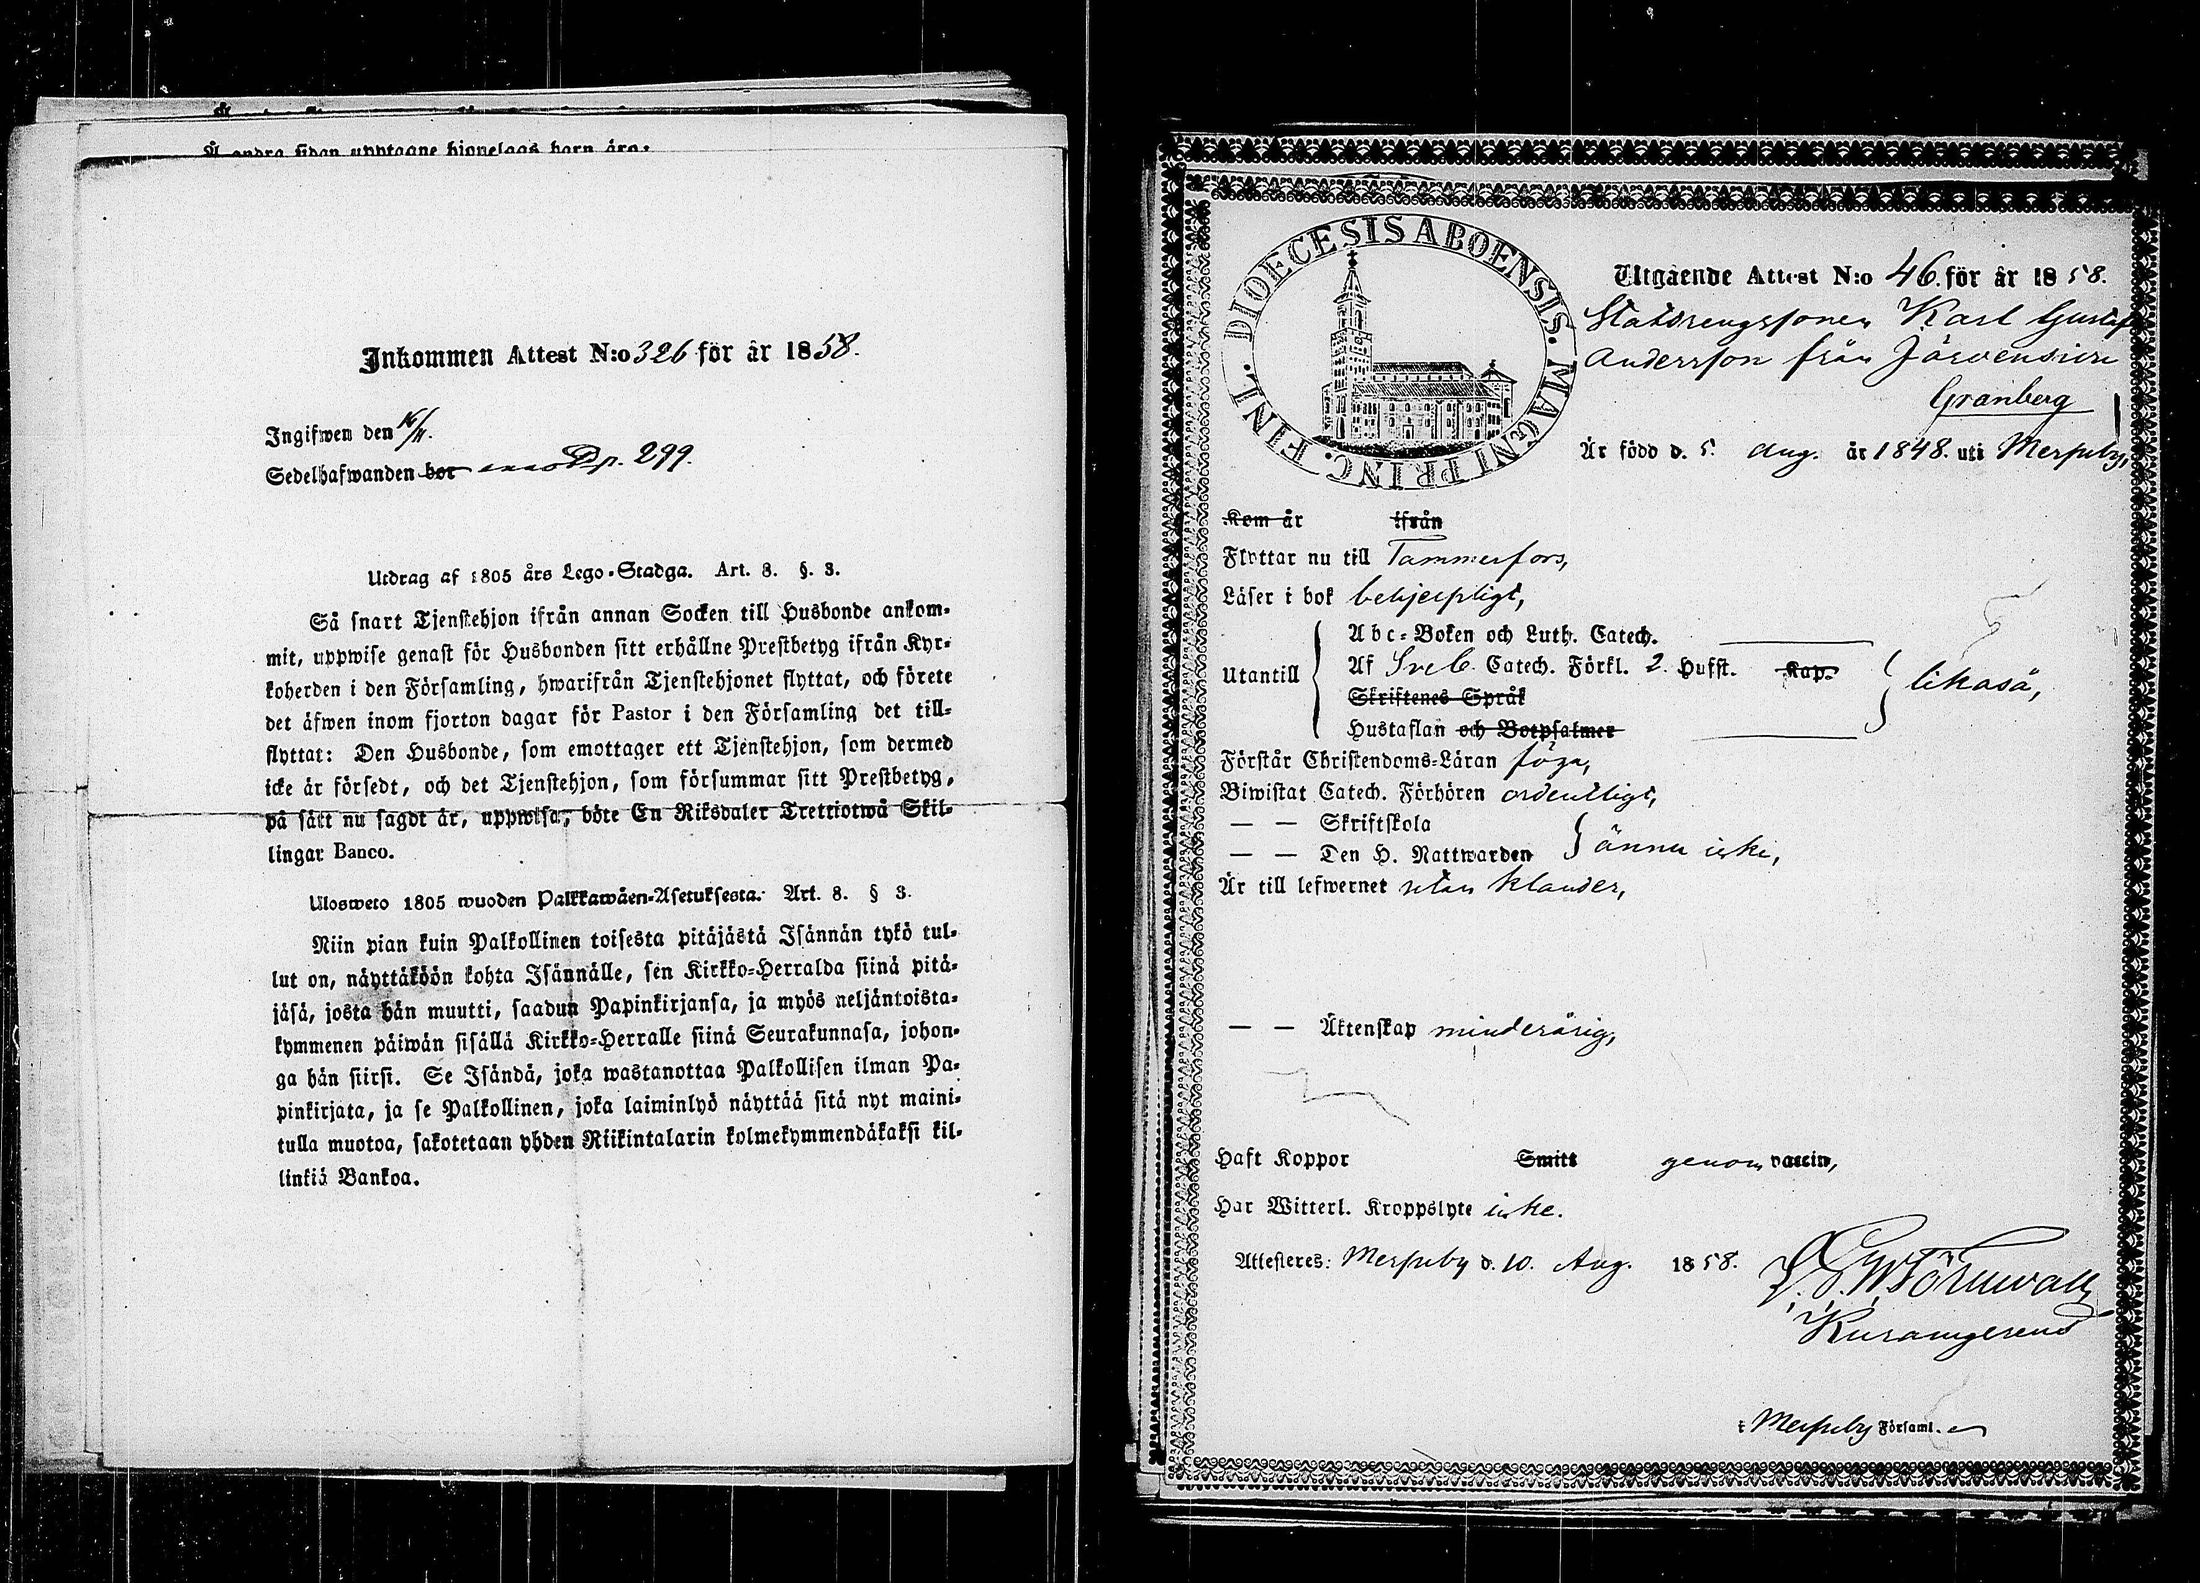 Å andra sidan upptagne hjonelags barn äro:
Inkommen Attest N:o 326 för år 1858.
Ingifwen den 16/11.
Sedelhafwanden bor p. 299.
Utdrag af 1805 års Lego-Stadga. Art. 8. §. 3.
Så snart Tjenstehjon ifrån annan Socken till Husbonde ankom-
mit, uppwise genast för Husbonden sitt erhållne Prestbetyg ifrån Kyr-
koherden i den Församling, hwarifrån Tjenstehjonet flyttat, och förete
det äfwen inom fjorton dagar för Pastor i den Församling det till-
flyttat: Den Husbonde, som emottager ett Tjenstehjon, som dermed
icke är försedt, och det Tjenstehjon, som försummar sitt Prestbetyg,
på sätt nu sagdt är, uppwisa, böte En Riksdaler Trettiotwå Skil-
lingar Banco.
Ulosweto 1805 wuoden Palkkawäen-Asetuksesta. Art. 8. § 3.
Niin pian kuin Palkollinen toisesta pitäjästä Isännän tykö tul-
lut on, näyttäköön kohta Isännälle, sen Kirkko-Herralda siinä pitä-
jäsä, josta hän muutti, saadun Papinkirjansa, ja myös neljäntoista-
kymmenen päiwän sisällä Kirkko-Herralle siinä Seurakunnasa, johon-
ga hän siirsi. Se Isändä, joka wastanottaa Palkollisen ilman Pa-
pinkirjata, ja se Palkollinen, joka laiminlyö näyttää sitä nyt maini-
tulla muotoa, sakotetaan yhden Riikintalarin kolmekymmendäkaksi kil-
linkiä Bankoa.
DIOECESIS ABOENSIS. MAGNI PRINC. FINL.
Utgående Attest N:o 46. för år 1858.
Statdrengssonen Karl Gustaf
Andersson från Järvensivu
Granberg
Är född d. 5. Aug. år 1848. uti Messuby,
Kom år ifrån
Flyttar nu till Tammerfors,
Läser i bok behjelpligt,
Utantill
Abc-Boken och Luth. Catech.
Af Sveb. Catech. Förkl. 2. Hufst. Kap.
likaså,
Skriftenes Språk
Hustaflan och Botpsalmer
Förstår Christendoms-Läran föga,
Biwistat Catech. Förhören ordentligt,
— — Skriftskola
— — Den H. Nattwarden
ännu icke,
Är till lefwernet utan klander,
— — Äktenskap minderårig,
Haft Koppor Smitt genom vaccin,
Har Witterl. Kroppslyte icke.
Attesteres: Messuby d. 10. Aug. 1858.
Törnwall,
i Messuby Församl.